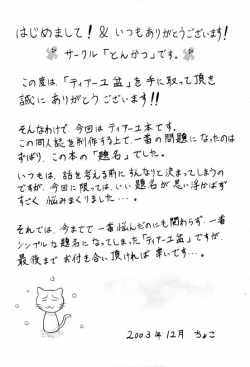 はじめまして！ & いつもありがとうございます！
サークル「とんかつ」です。
この度は、「ティアーユ盆」を手に取って頂き
誠にありがとうございます!!
そんなわけで、今回はティアーユ本です。
この同人誌を制作する上で、一番の問題になったのは
ずばり、この本の「題名」でした。
いつもは、話を考える前にすんなりと決まってしまうの
ですが、今回に限っては、いい題名が思い浮かばず
すごく悩みまくりました・・・。
それでは、今までで一番悩んだのにも関わらず、一番
シンプルな題名になってしまった「ティアーユ盆」ですが、
最後までお付き合い頂ければ幸いです・・・。
2003年12月 ちょこ